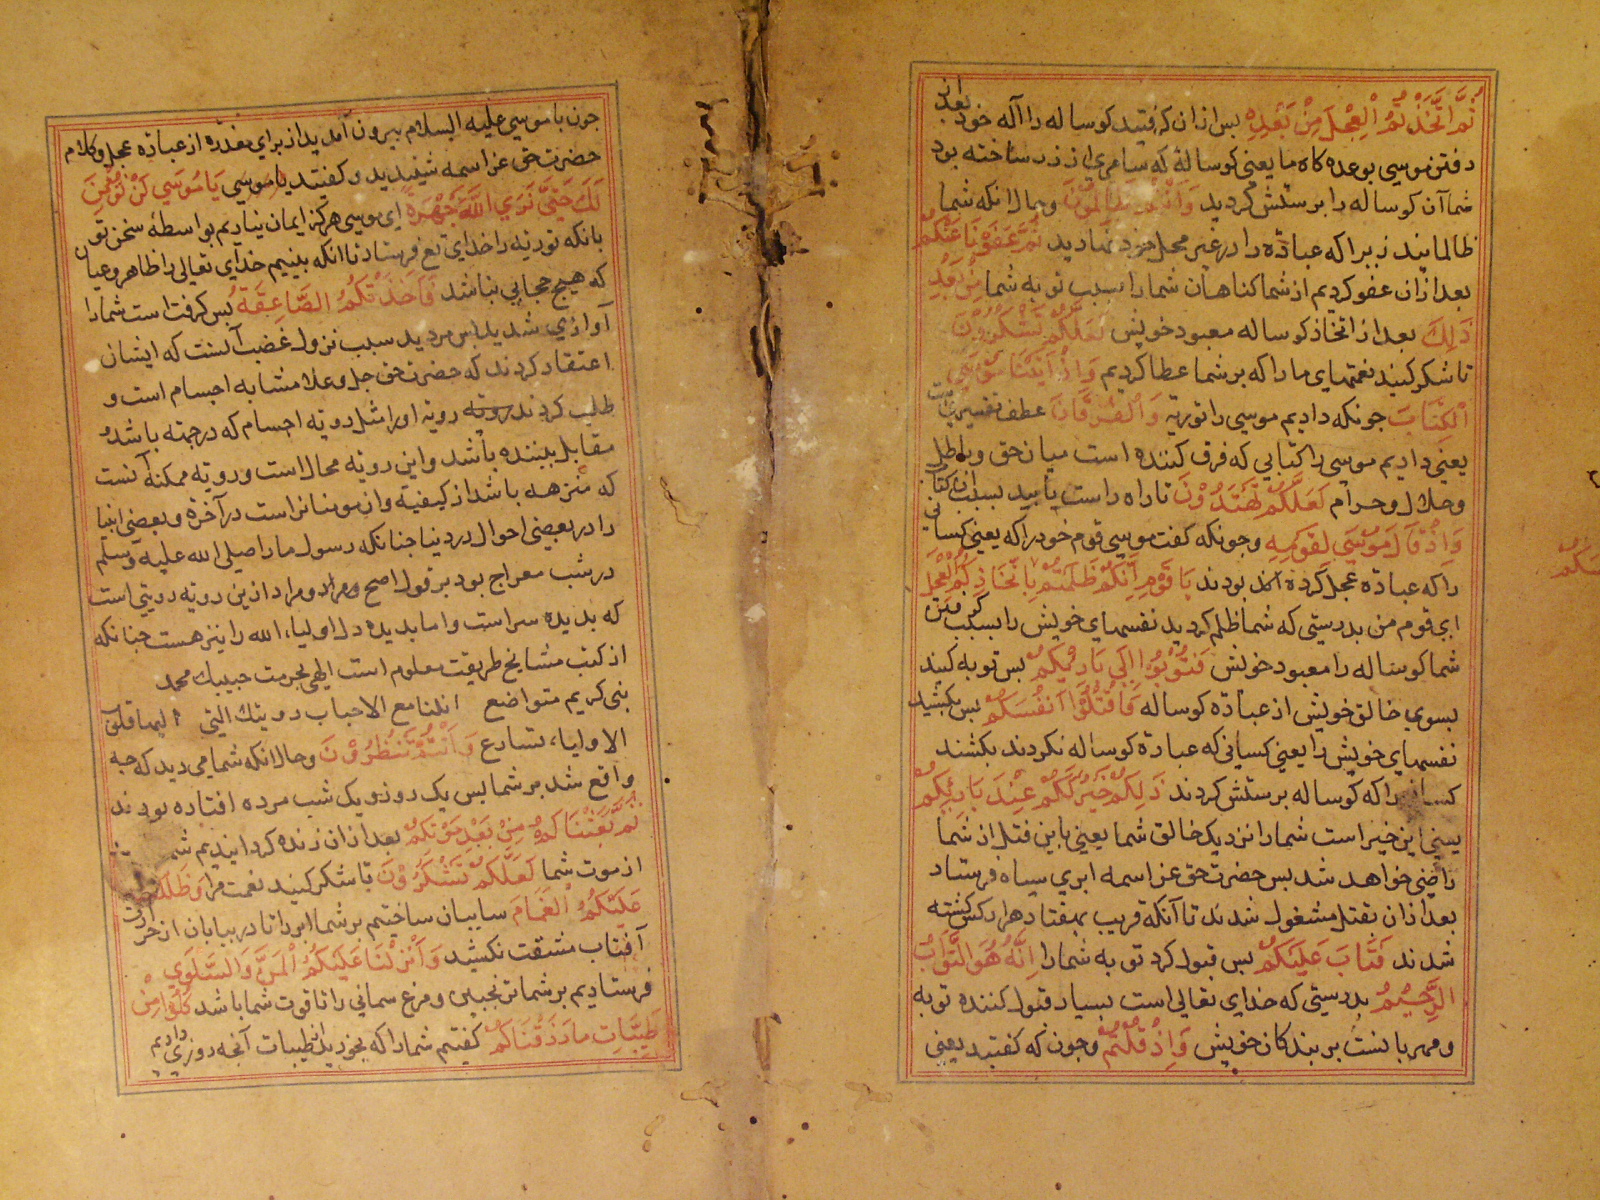 ثُمَّ اتَّخَذْتُمُ الْعِجْلَ مِنْ بَعْدِهِ بس از ان کرفتید کوساله را اله خود بعد از
رفتن موسی بوعده کاه ما یعنی کوساله که سامری از زر ساخته بود
شما آن کوساله را برستش کردید وَاَنْتُمْ ظَالِمُوْنَ و حال انکه شما
ظالمانید زیرا که عبادة را در غیر محل خود نهادید ثُمَّ عَفَوْنَا عَنْكُمْ
بعد از ان عفو کردیم از شما کناهان شما را بسبب توبه شما مِنْ بَعْدِ
ذٰلِكَ بعد از اتخاذ کوساله معبود خویش لَعَلَّكُمْ تَشْكُرُوْنَ
تا شکر کنید نعمتهای ما را که بر شما عطا کردیم وَاِذْ اٰتَيْنَا مُوْسَي
الْكِتَابَ جونکه دادیم موسی را توریة وَالْفُرْقَانَ عطف تفسیریست
یعنی دادیم موسی را کتابی که فرق کننده است میان حق و باطل
و حلال و حرام لَعَلَّكُمْ تَهْتَدُوْنَ تا راه راست یابید بسبب ان کتاب
وَاِذْ قَالَ مُوْسَي لِقَوْمِهِ و جونکه کفت موسی قوم خود را که یعنی کسانی
را که عبادة عجل کرده بودند يَا قَوْمِ اِنَّكُمْ ظَلَمْتُمْ بِاتِّخَاذِكُمُ الْعِجْلَ
ای قوم من بدرستی که شما ظلم کردید نفسهای خویش را بسبب کرفتن
شما کوساله را معبود خویش فَتُوْبُوْا اِلَي بَارِئِكُمْ بس توبه کنید
بسوی خالق خویش از عبادة کوساله فَاقْتُلُوْا اَنْفُسَكُمْ بس بکشید
نفسهای خویش را یعنی کسانی که عبادة کوساله نکردند بکشند
کسانی را که کوساله برستش کردند ذٰلِكُمْ خَيْرٌ لَكُمْ عِنْدَ بَارِئِكُمْ
یعنی این خیر است شما را نزدیک خالق شما یعنی باین قتل از شما
راضی خواهد شد بس حضرت حق عز اسمه ابری سیاه فرستاد
بعد از ان بقتل مشغول شدند تا آنکه قریب بهفتاد هزار کس کشته
شدند فَتَابَ عَلَيْكُمْ بس قبول کرد توبه شما را اِنَّهُ هُوَ التَّوَّابُ
الرَّحِيْمُ بدرستی که خدای تعالی است بسیار قبول کننده توبه
و مهربانست بر بندکان خویش وَاِذْ قُلْتُمْ و جون که کفتید یعنی
جون با موسی علیه السلام بیرون آمدید از برای معذرة از عبادة عجل و کلام
حضرت حق عز اسمه شنیدید و کفتید یا موسی يَا مُوْسَي لَنْ نُؤْمِنَ
لَكَ حَتَّي نَرَي اللّٰهَ جَهْرَةً ای موسی هرکز ایمان نیاریم بواسطۀ سخن تو
بانکه توریة را خدای تع فرستاد تا انکه ببینیم خدای تعالی را ظاهر و عیان
که هیج حجابی نباشد فَاَخَذَتْكُمُ الصَّاعِقَةُ بس کرفت است شما را
آوازی شدید بس مردید سبب نزول غضب آنست که ایشان
اعتقاد کردند که حضرت حق جل و علا مشابه اجسام است و
طلب کردند رویة رویة او را مثل رویة اجسام که در جهة باشد
مقابل بیننده باشد و این رویة محال است و رویة ممکنه آنست
که منزهه باشد از کیفیة و ان مومنانراست در آخرة و بعضی انبیا
را در بعضی احوال در دنیا جنانکه رسول ما را صلی الله علیه و سلم
در شب معراج بود بر قول اصح و مراد و مراد ازین رویة رویتی است
که بدیده سر است و اما بدیده دل اولیاء الله را نیز هست جنانکه
از کتب مشایخ طریقت معلوم است الهی بحرمت حبیبک محمد
نبی کریم متواضع انلنا مع الاحباب رویتك التی الیها قلوب
الاولیاء تسارع وَاَنْتُمْ تَنْظُرُوْنَ و حال انکه شما می دید که جه
واقع شد بر شما بس یک روز و یک شب مرده افتاده بودند
ثُمَّ بَعَثْنَاكُمْ مِنْ بَعْدِ مَوْتِكُمْ بعد از ان زنده کردانیدیم
از موت شما لَعَلَّكُمْ تَشْكُرُوْنَ تا شکر کنید نعمت مرا وَظَلَّلْنَا
عَلَيْكُمُ الْغَمَامَ سایبان ساختیم بر شما ابر را تا در بیابان از حرارت
آفتاب مشقت نکشید وَاَنْزَلْنَا عَلَيْكُمُ الْمَنَّ وَالسَّلْوَي
فرستادیم بر شما ترنجبین و مرغ سمانی را تا قوت شما باشد كُلُوْا مِنْ
طَيِّبَاتِ مَا رَزَقْنَاكُمْ کفتیم شما را که بخورید از طیبات آنجه روزی دادیم